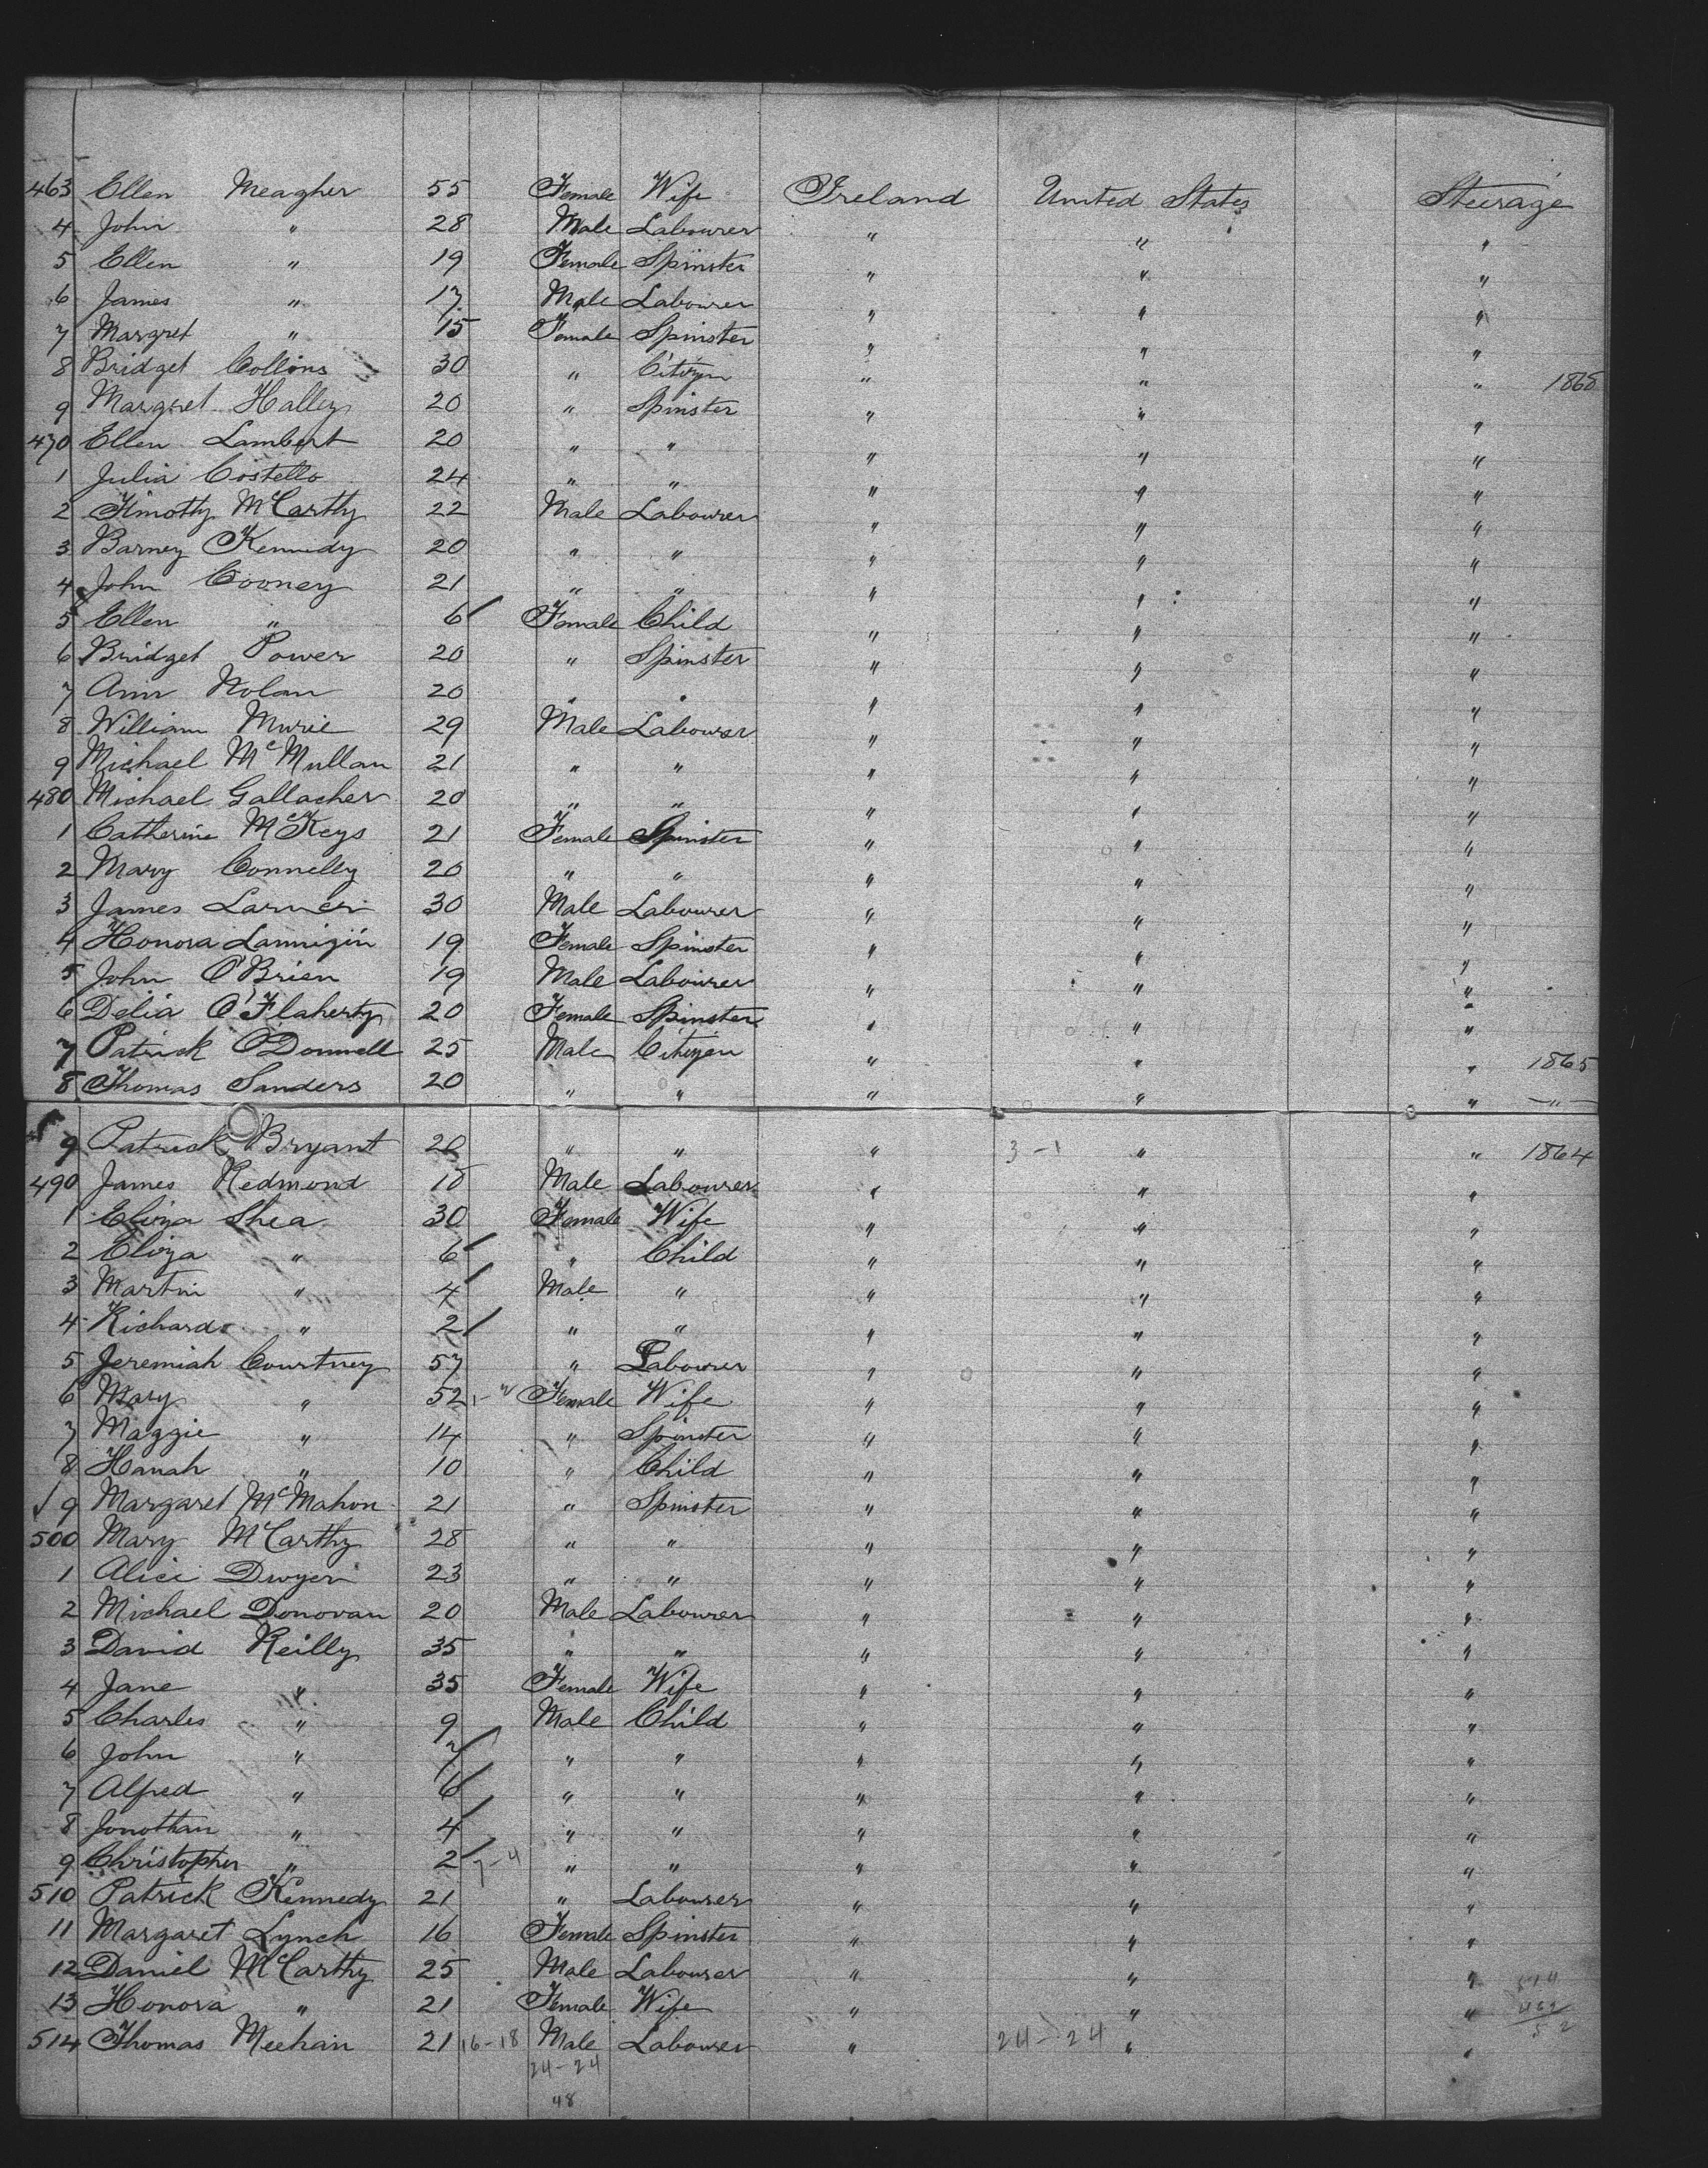 463 Ellen Meagher 55 Female Wife Ireland United States Steerage
4 John " 28 Male Labourer " " "
5 Ellen " 19 Female Spinster " " "
6 James " 17 Male Labourer " " "
7 Margret " 15 Female Spinster " " "
8 Bridget Collins 30 " Citizen " " " 1868
9 Margret Halley 20 " Spinster " " "
470 Ellen Lambert 20 " " " " "
1 Julia Costello 24 " " " " "
2 Timothy McCarthy 22 Male Labourer " " "
3 Barney Kennedy 20 " " " " "
4 John Cooney 21 " " " " "
5 Ellen " 6 Female Child " " "
6 Bridget Power 20 " Spinster " " "
7 Ann Nolan 20 " " " " "
8 William Murie 29 Male Labourer " " "
9 Michael McMullan 21 " " " " "
480 Michael Gallacher 20 " " " " "
1 Catherine McKeys 21 Female Spinster " " "
2 Mary Connelly 20 " " " " "
3 James Larmer 30 Male Labourer " " "
4 Honora Lannigin 19 Female Spinster " " "
5 John O'Brien 19 Male Labourer " " "
6 Delia O'Flaherty 20 Female Spinster " " "
7 Patrick O'Donnell 25 Male Citizen " " " 1865
8 Thomas Sanders 20 " " " " " — " —
9 Patrick Bryant " " " 3-1 " " 1864
490 James Redmond 18 Male Labourer " " "
1 Eliza Shea 30 Female Wife " " "
2 Eliza " 6 " Child " " "
3 Martin " 4 Male " " " "
4 Richard " 2 " " " " "
5 Jeremiah Courtney 57 " Labourer " " "
6 Mary " 52 Female Wife " " "
7 Maggie " 14 " Spinster " " "
8 Hanah " 10 " Child " " "
9 Margaret McMahon 21 " Spinster " " "
500 Mary McCarthy 28 " " " " "
1 Alice Dwyer 23 " " " " "
2 Michael Donovan 20 Male Labourer " " "
3 David Reilly 35 " " " " "
4 Jane " 35 Female Wife " " "
5 Charles " 9 Male Child " " "
6 John " 7 " " " " "
7 Alfred " 6 " " " " "
8 Jonothan " 4 " " " " "
9 Christopher " 2 7-4 " " " " "
510 Patrick Kennedy 21 " Labourer " " "
11 Margaret Lynch 16 Female Spinster " " "
12 Daniel McCarthy 25 Male Labourer " " " 514
13 Honora " 21 Female Wife " " " 462
514 Thomas Meehan 21 16-18 Male Labourer " 24-24 " " 52
24-24
48